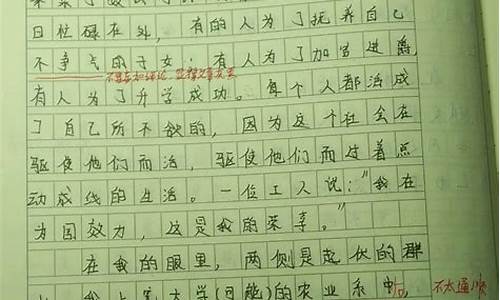 日忙碌在外，有的人为了抚养自己
不争气的子女；有人为了加官进爵
有人为了升学成功。每个人都活成
了自己所不欲的，因为这个社会在
驱使他们而活，驱使他们而过着点
动成线的生活。一位工人说："我在
为国效力，这是我的荣幸。"
在我的眼里，两侧是起伏的群
(可能)的农业系中
不太通顺